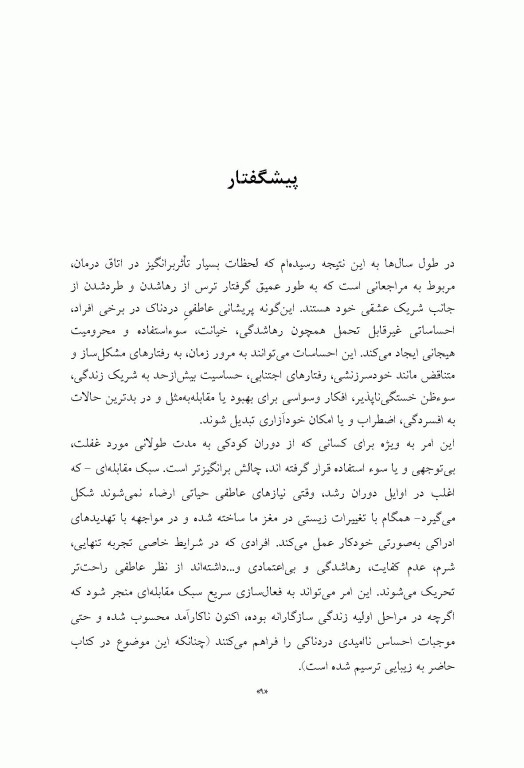 پیشگفتار
در طول سال‌ها به این نتیجه رسیده‌ام که لحظات بسیار تأثربرانگیز در اتاق درمان،
مربوط به مراجعانی است که به طور عمیق گرفتار ترس از رهاشدن و طردشدن از
جانب شریک عشقی خود هستند. این‌گونه پریشانی عاطفیِ دردناک در برخی افراد،
احساساتی غیرقابل تحمل همچون رهاشدگی، خیانت، سوءاستفاده و محرومیت
هیجانی ایجاد می‌کند. این احساسات می‌توانند به مرور زمان، به رفتارهای مشکل‌ساز و
متناقض مانند خودسرزنشی، رفتارهای اجتنابی، حساسیت بیش‌ازحد به شریک زندگی،
سوءظن خستگی‌ناپذیر، افکار وسواسی برای بهبود یا مقابله‌به‌مثل و در بدترین حالات
به افسردگی، اضطراب و یا امکان خودآزاری تبدیل شوند.
این امر به ویژه برای کسانی که از دوران کودکی به مدت طولانی مورد غفلت،
بی‌توجهی و یا سوء استفاده قرار گرفته اند، چالش برانگیزتر است. سبک مقابله‌ای – که
اغلب در اوایل دوران رشد، وقتی نیازهای عاطفی حیاتی ارضاء نمی‌شوند شکل
می‌گیرد– همگام با تغییرات زیستی در مغز ما ساخته شده و در مواجهه با تهدیدهای
ادراکی به‌صورتی خودکار عمل می‌کند. افرادی که در شرایط خاصی تجربه تنهایی،
شرم، عدم کفایت، رهاشدگی و بی‌اعتمادی و...داشته‌اند از نظر عاطفی راحت‌تر
تحریک می‌شوند. این امر می‌تواند به فعال‌سازی سریع سبک مقابله‌ای منجر شود که
اگرچه در مراحل اولیه زندگی سازگارانه بوده، اکنون ناکارآمد محسوب شده و حتی
موجبات احساس ناامیدی دردناکی را فراهم می‌کنند (چنانکه این موضوع در کتاب
حاضر به زیبایی ترسیم شده است).
«۹»